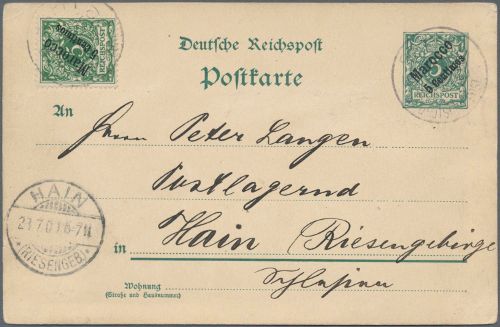 Deutsche Reichspost
Postkarte
Marocco
5 Centimos
REICHSPOST
Marocco
5 Centimos
REICHSPOST
An
Herrn Peter Langen
Postlagernd
in Hain (Riesengebirge
Schlesien
HAIN
(RIESENGEB.)
Wohnung
(Straße und Hausnummer)